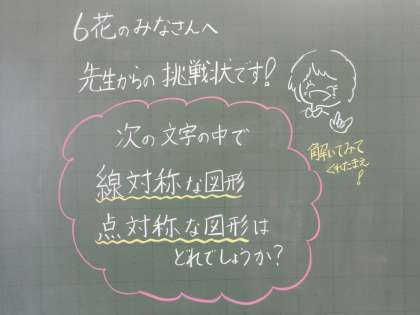 6花のみなさんへ
先生からの挑戦状です!
次の文字の中で
線対称な図形
点対称な図形は
どれでしょうか?
解いてみて
くれたまえ!